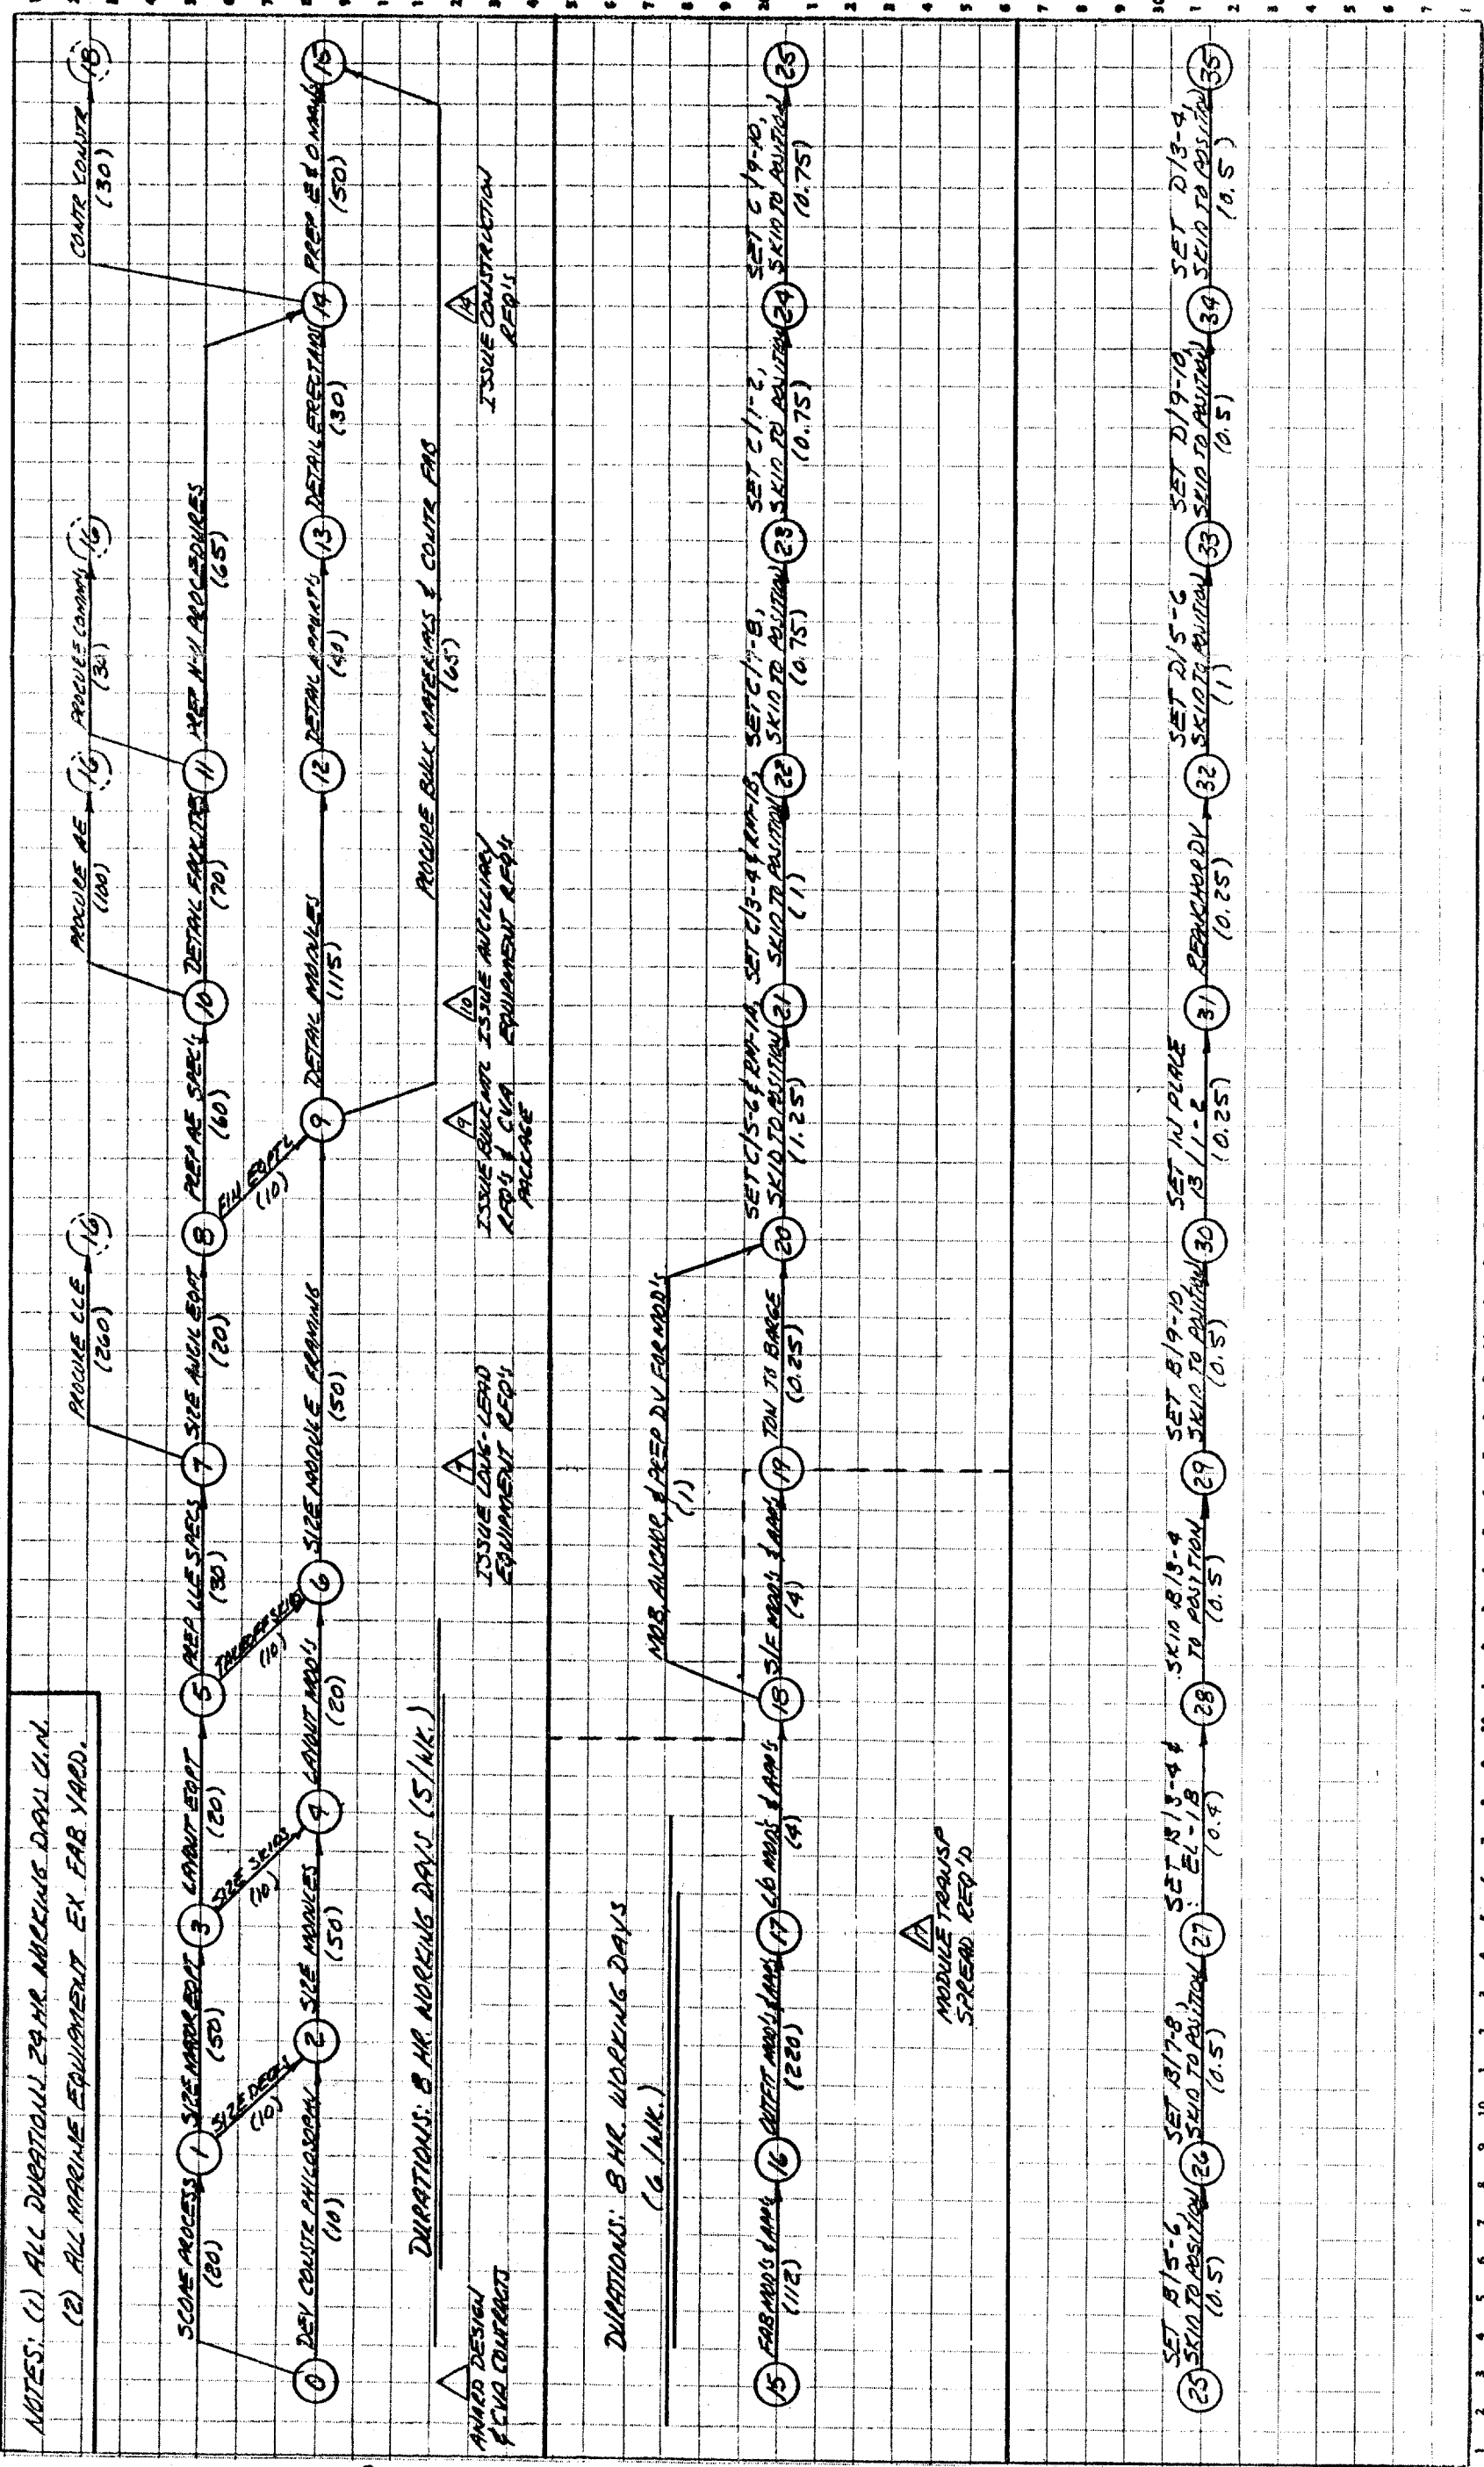 NOTES: (1) ALL DURATIONS 24 HR. WORKING DAYS U.N.
(2) ALL MARINE EQUIPMENT EX FAB YARD.
PROCURE LLE
(260)
16
PROCURE AE
(100)
16
PROCURE COMM'S
(30)
16
CONTR CONSTR
(30)
18
SCOPE PROCESS
(20)
1
SIZE MAJOR EQPT
(50)
3
LAYOUT EQPT
(20)
5
PREP LLE SPECS
(30)
7
SIZE ANCIL EQPT
(20)
8
PREP AE SPEC'S
(60)
10
DETAIL FACILITIES
(70)
11
PREP H-U PROCEDURES
(65)
SIZE DECKS
(10)
SIZE SKIDS
(10)
TAKEOFF SKIDS
(10)
FIN EQPT L
(10)
0
DEV CONSTR PHILOSOPHY
(10)
2
SIZE MODULES
(50)
4
LAYOUT MOD'S
(20)
6
SIZE MODULE FRAMING
(50)
9
DETAIL MODULES
(115)
12
DETAIL APPURT'S
(40)
13
DETAIL ERECTAIDS
(30)
14
PREP E&O MAN'LS
(50)
15
DURATIONS: 8 HR. WORKING DAYS (5/WK.)
PROCURE BULK MATERIALS & CONTR FAB
(65)
AWARD DESIGN
& CVA CONTRACTS
7
ISSUE LONG-LEAD
EQUIPMENT RFQ's
9
ISSUE BULK MTL
RFQ's & CVA
PACKAGE
10
ISSUE ANCILLIARY
EQUIPMENT RFQ's
14
ISSUE CONSTRUCTION
RFQ's
DURATIONS: 8 HR. WORKING DAYS
(6/WK.)
MOB, ANCHOR, & PREP DV FOR MOD's
(1)
15
FAB MOD's & APP'S
(112)
16
OUTFIT MOD's & APP'S
(220)
17
LO MOD'S & APP'S
(4)
18
S/F MOD'S & APP'S
(4)
19
TOW TO BARGE
(0.25)
20
SET C/5-6 & RM-1A,
SKID TO POSITION
(1.25)
21
SET C/3-4 & RM-1B,
SKID TO POSITION
(1)
22
SET C/7-8,
SKID TO POSITION
(0.75)
23
SET C/1-2,
SKID TO POSITION
(0.75)
24
SET C/9-10,
SKID TO POSITION
(0.75)
25
17
MODULE TRANSP
SPREAD REQ'D
25
SET B/5-6,
SKID TO POSITION
(0.5)
26
SET B/7-8,
SKID TO POSITION
(0.5)
27
SET B/3-4 &
EL-1B
(0.4)
28
SKID B/3-4
TO POSITION
(0.5)
29
SET B/9-10,
SKID TO POSITION
(0.5)
30
SET IN PLACE
B/1-2
(0.25)
31
REANCHOR DV
(0.25)
32
SET D/5-6
SKID TO POSITION
(1)
33
SET D/9-10,
SKID TO POSITION
(0.5)
34
SET D/3-4,
SKID TO POSITION
(0.5)
35